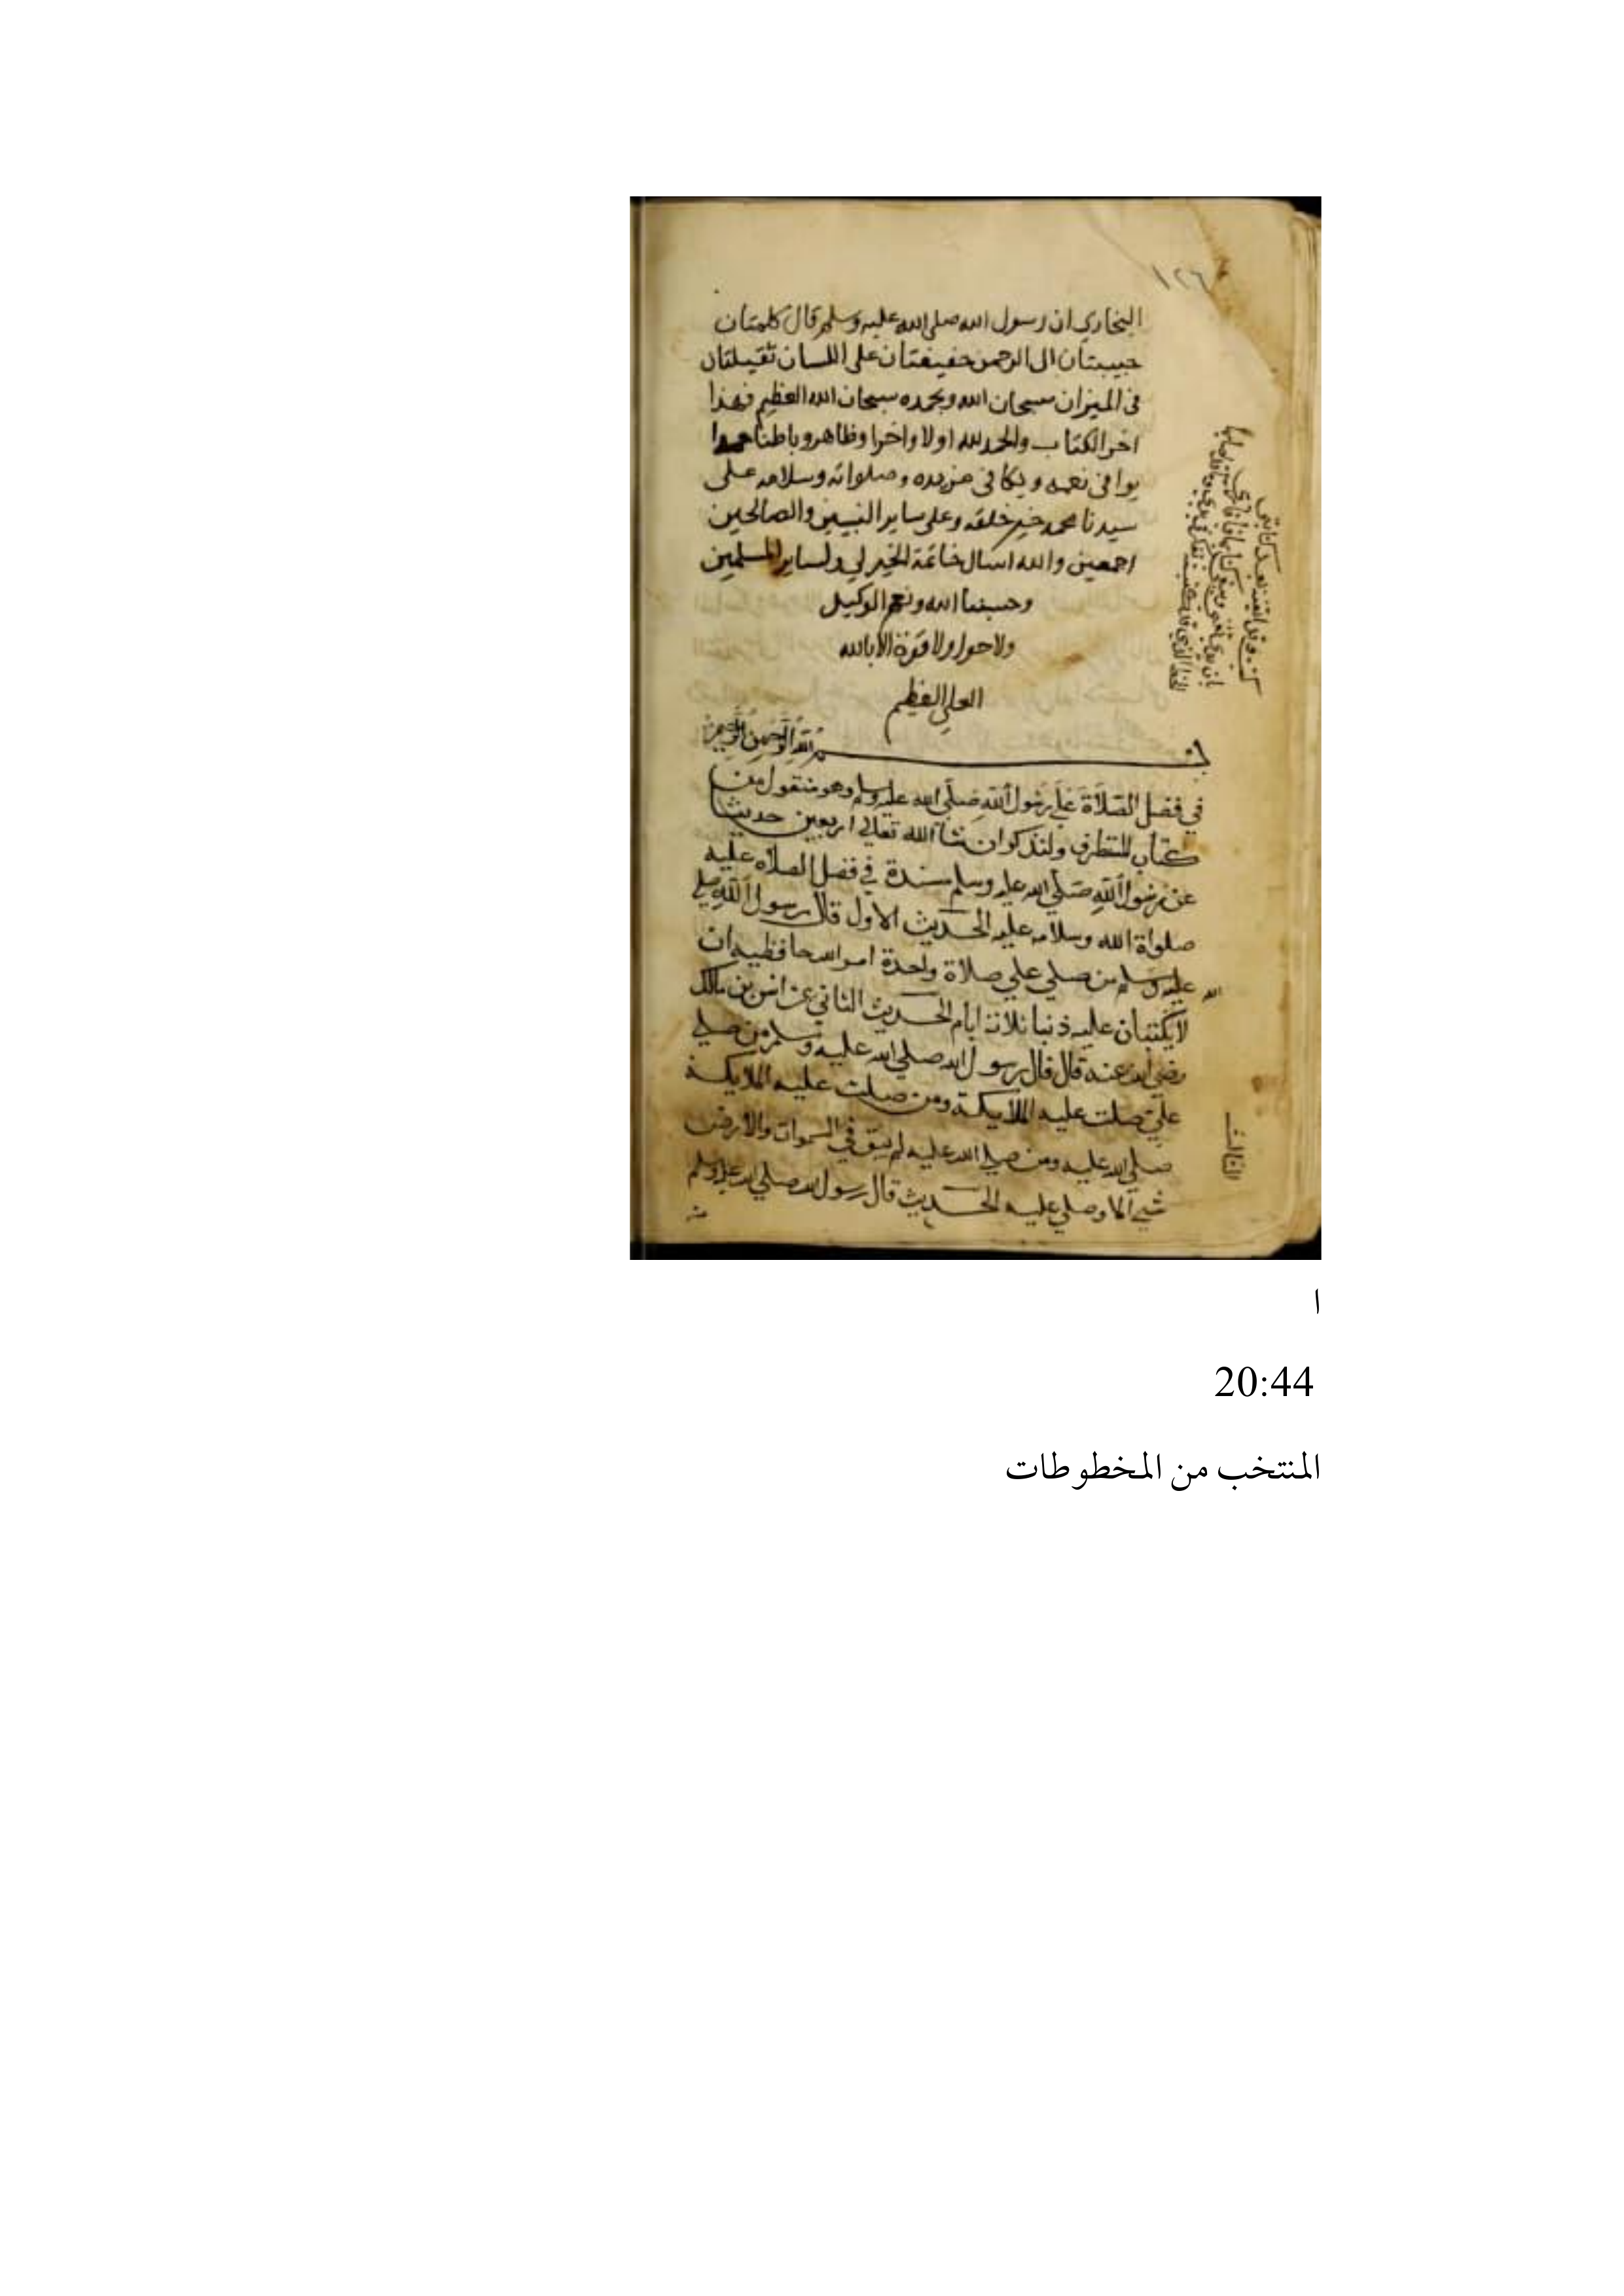 ١٢٦
البخاري ان رسول الله صلى الله عليه وسلم قال كلمتان
حبيبتان الى الرحمن خفيفتان على اللسان ثقيلتان
فى الميزان سبحان الله وبحمده سبحان الله العظيم فهذا
اخر الكتاب والحمد لله اولا واخرا وظاهرو باطنا حمدا
يوافى نعمه ويكافى مزيده وصلواته وسلامه على
سيدنا محمد خير خلقه وعلى ساير النبيين والصالحين
اجمعين والله اسال خاتمة الخير لي ولساير المسلمين
وحسبنا الله ونعم الوكيل
ولا حول ولا قوة الا بالله
العلي العظيم
بسم الله الرحمن الرحيم
في فضل الصلاة علي رسول الله صلي الله عليه وسلم وهو منقول من
كتاب المستطرف ولنذكر ان شآ الله تعالي اربعين حديثا
عن رسول الله صلي الله عليه وسلم سندة في فضل الصلاه عليه
صلواة الله وسلامه عليه الحديث الاول قال رسول الله صلي
الله عليه وسلم من صلي علي صلاة واحدة امر الله حافظيه ان
لا يكتبان عليه ذنبا ثلاثة ايام الحديث الثاني عن انس بن مالك
رضي الله عنه قال قال رسول الله صلي الله عليه وسلم من صلي
علي صلت عليه الملايكة ومن صلت عليه الملايكة
صلي الله عليه ومن صلي الله عليه لم يبق في السموات والارض
شيء الا وصلي عليه الحديث قال رسول الله صلي الله عليه وسلم
الثالث
من
ا
20:44
المنتخب من المخطوطات